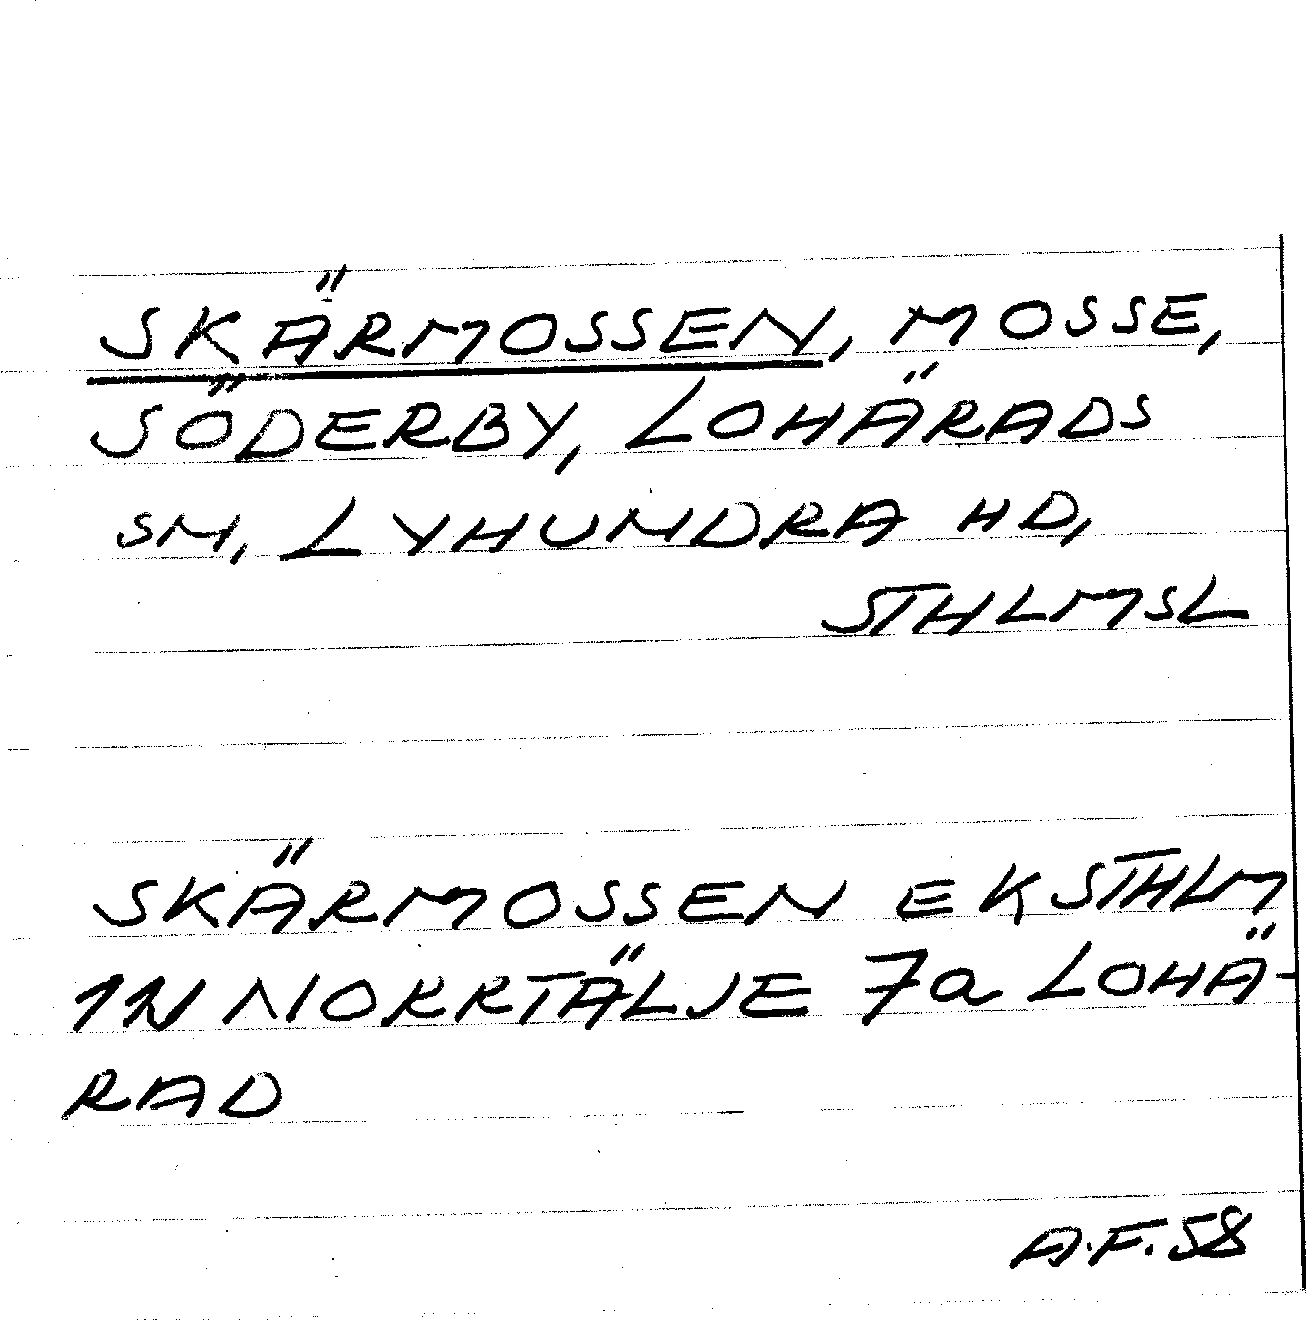 SKÄRMOSSEN, MOSSE,
SÖDERBY, LOHÄRADS
SN, LYHUNDRA HD,
STHLMSL
SKÄRMOSSEN EK STHLM
1N NORRTÄLJE 7a LOHÄ-
RAD
A.F. 58